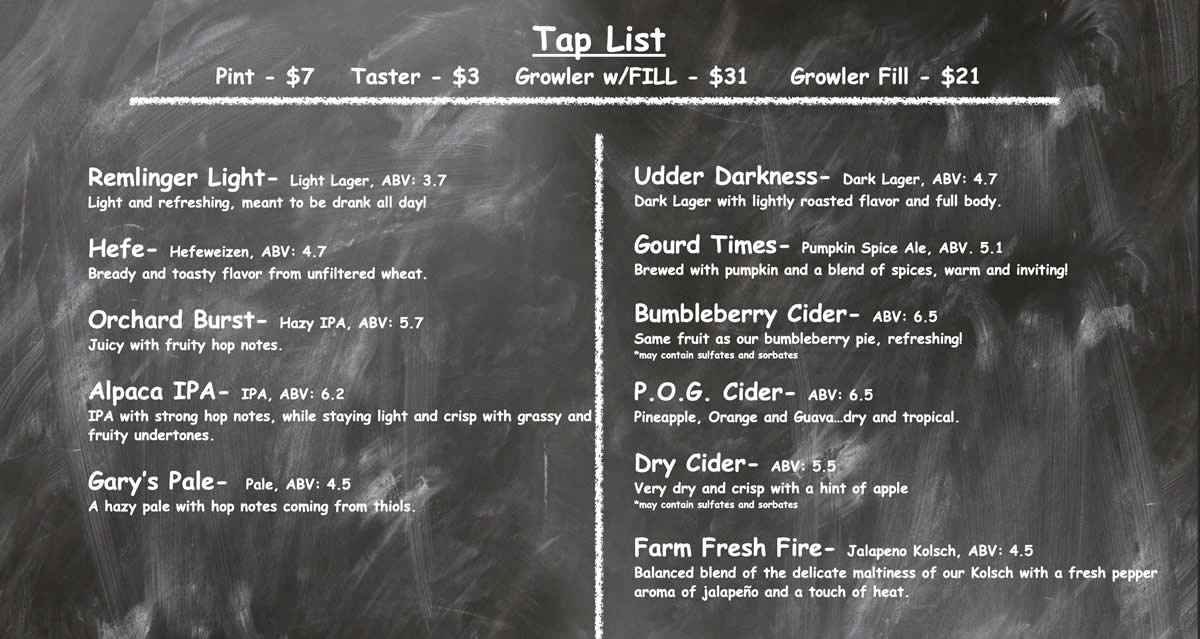 Tap List
Pint - $7 Taster - $3 Growler w/FILL - $31 Growler Fill - $21
Remlinger Light- Light Lager, ABV: 3.7
Light and refreshing, meant to be drank all day!
Hefe- Hefeweizen, ABV: 4.7
Bready and toasty flavor from unfiltered wheat.
Orchard Burst- Hazy IPA, ABV: 5.7
Juicy with fruity hop notes.
Alpaca IPA- IPA, ABV: 6.2
IPA with strong hop notes, while staying light and crisp with grassy and
fruity undertones.
Gary's Pale- Pale, ABV: 4.5
A hazy pale with hop notes coming from thiols.
Udder Darkness- Dark Lager, ABV: 4.7
Dark Lager with lightly roasted flavor and full body.
Gourd Times- Pumpkin Spice Ale, ABV. 5.1
Brewed with pumpkin and a blend of spices, warm and inviting!
Bumbleberry Cider- ABV: 6.5
Same fruit as our bumbleberry pie, refreshing!
*may contain sulfates and sorbates
P.O.G. Cider- ABV: 6.5
Pineapple, Orange and Guava...dry and tropical.
Dry Cider- ABV: 5.5
Very dry and crisp with a hint of apple
*may contain sulfates and sorbates
Farm Fresh Fire- Jalapeno Kolsch, ABV: 4.5
Balanced blend of the delicate maltiness of our Kolsch with a fresh pepper
aroma of jalapeño and a touch of heat.